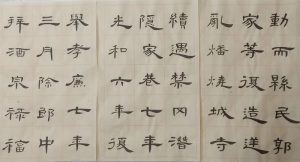 動而縣民郭
家等復造逆
亂燔燒城寺
續遇禁冈潛
隱家巷七年
光和六年復
舉孝廉七年
三月除郎中
拜酒泉祿福